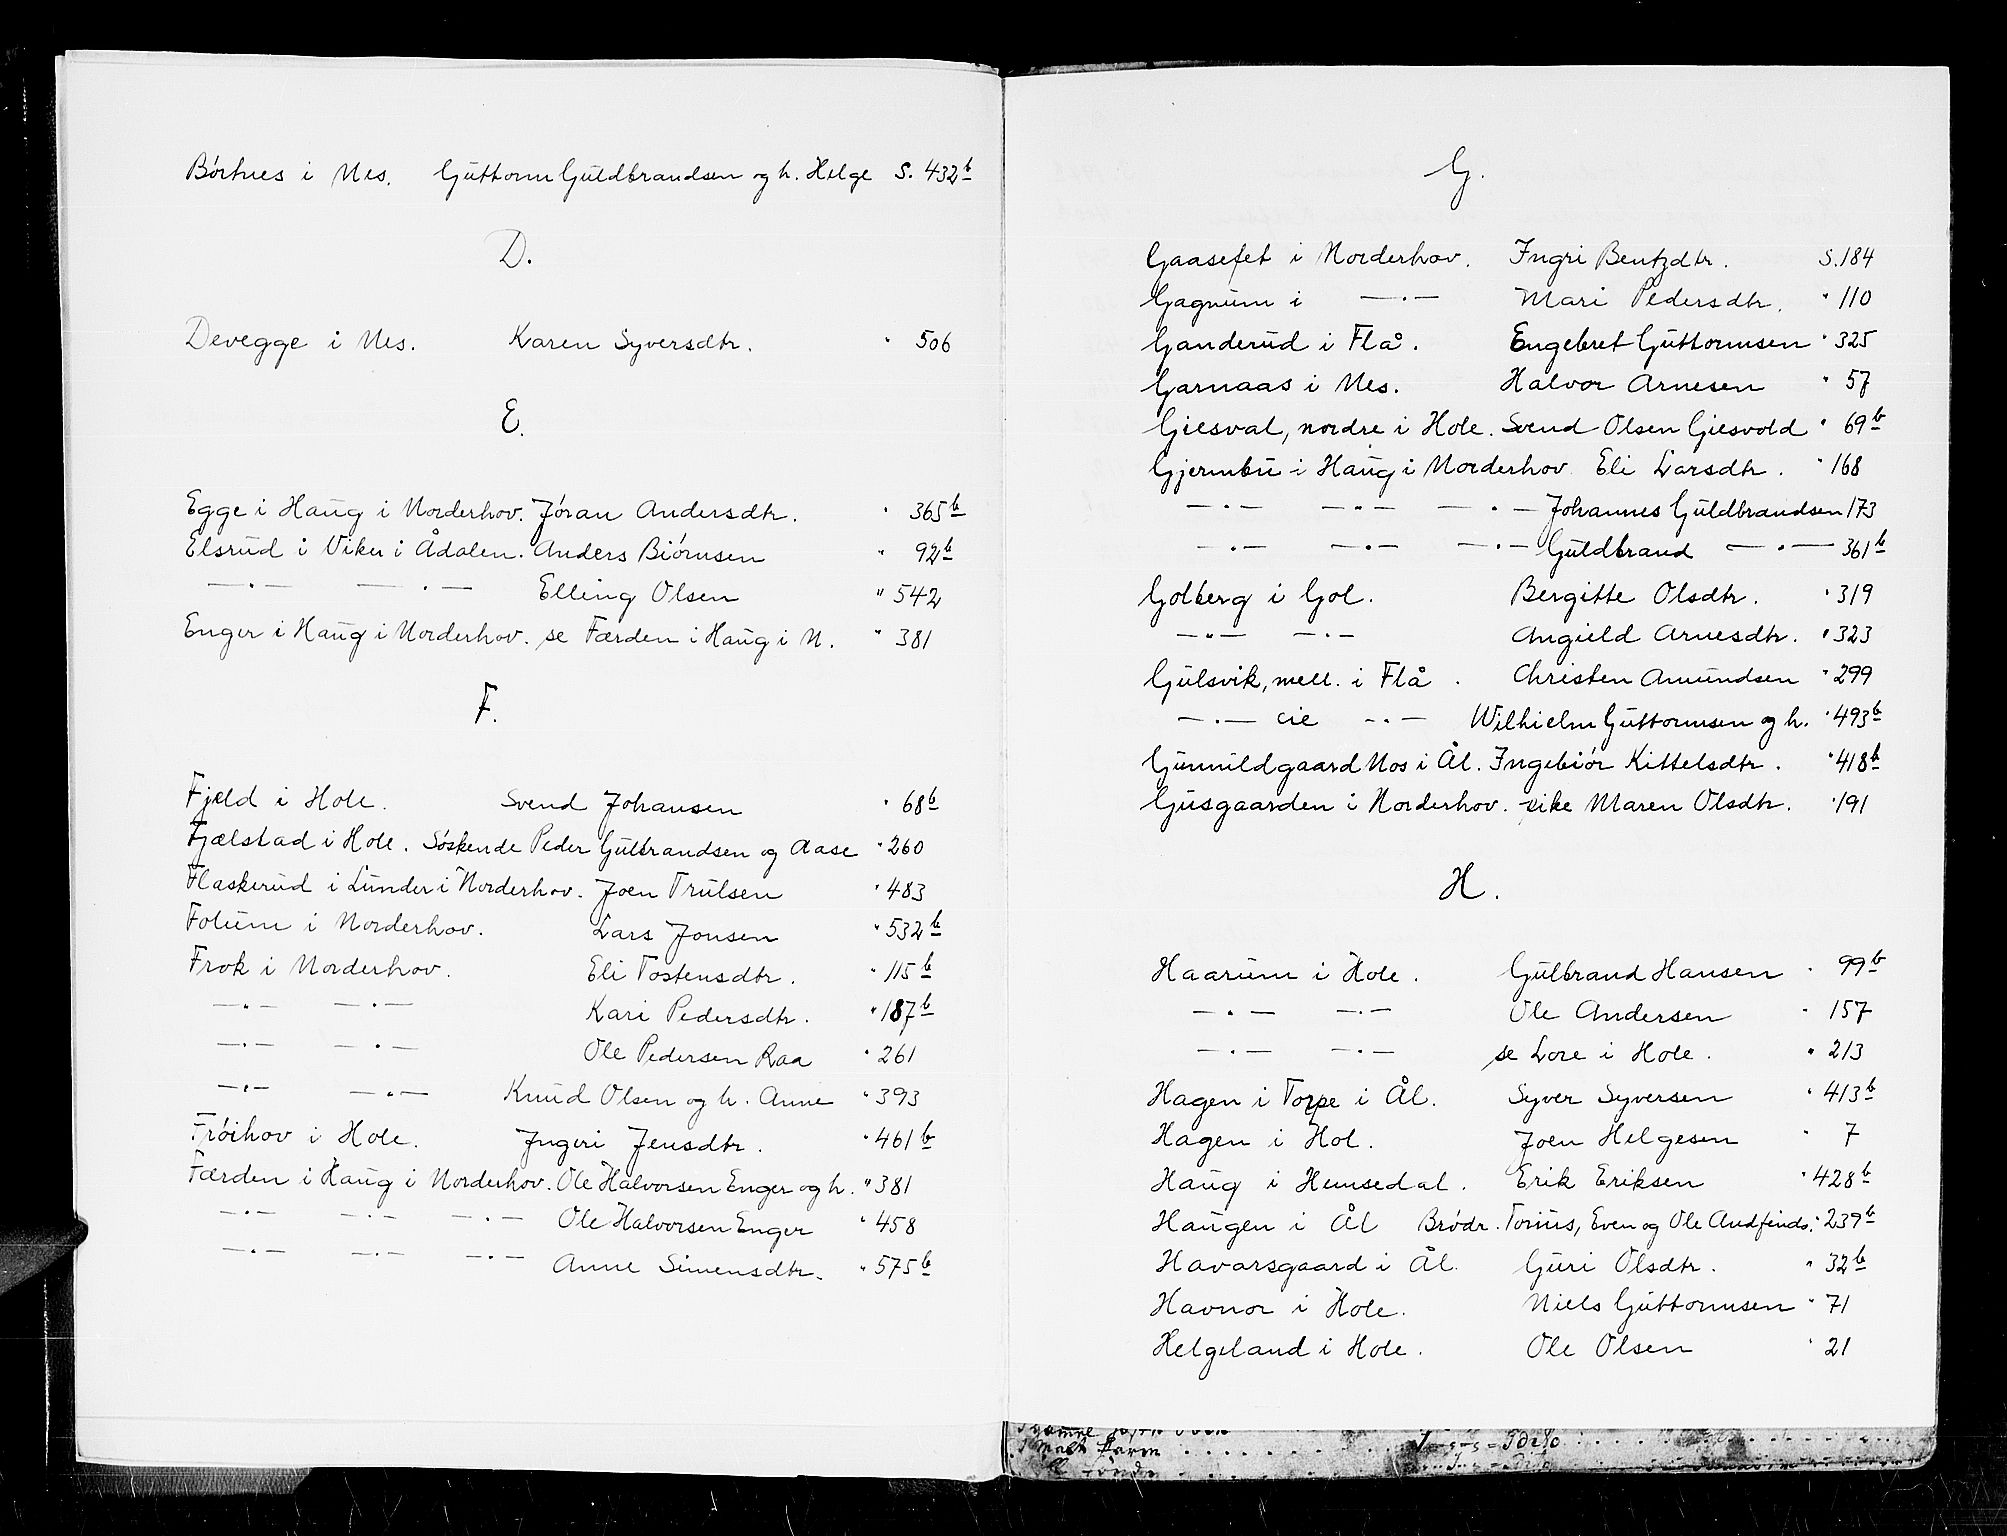 Børtnes i Nes. Guttorm Guldbrandsen og h. Helge S. 432b
D.
Devegge i Nes. Karen Syversdtr. " 506
E.
Egge i Haug i Norderhov. Jøran Andersdtr. " 365b
Elsrud i Viker i Ådalen. Anders Biørnsen " 92b
—"— —"— Elling Olsen " 542
Enger i Haug i Norderhov. se Færden i Haug i N. " 381
F.
Fjeld i Hole. Svend Johansen " 68b
Fjælstad i Hole. Søskende Peder Gulbrandsen og Aase " 260
Flaskerud i Lunder i Norderhov. Joen Trulsen " 483
Folum i Norderhov. Lars Jonsen " 532b
Frok i Norderhov. Eli Tostensdtr. " 115b
—"— —"— Kari Pedersdtr. " 187b
—"— —"— Ole Pedersen Raa " 261
—"— —"— Knud Olsen og h. Anne " 393
Frøihov i Hole. Ingeri Jensdtr. " 461b
Færden i Haug i Norderhov. Ole Halvorsen Enger og h. " 381
—"— —"— —"— Ole Halvorsen Enger " 458
—"— —"— —"— Anne Simensdtr. " 575b
G.
Gaasefet i Norderhov. Ingri Bentzdtr. S. 184
Gagnum i —"— Mari Pedersdtr. " 110
Ganderud i Flå. Engebret Guttormsen " 325
Garnaas i Nes. Halvor Arnesen " 57
Giesval, nordre i Hole. Svend Olsen Giesvold " 69b
Gjermbu i Haug i Norderhov. Eli Larsdtr. " 168
—"— —"— —"— Johannes Guldbrandsen 173
—"— —"— —"— Guldbrand —"— 361b
Golberg i Gol. Bergitte Olsdtr. " 319
—"— —"— Angield Arnesdtr. " 323
Gulsvik, mell. i Flå. Christen Amundsen " 299
—"— —"— Wilhielm Guttormsen og h. " 493b
Gunnildgaard Nos i Ål. Ingebiør Kittelsdtr. " 418b
Gusgaarden i Norderhov. pike Maren Olsdtr. " 191
H.
Haarum i Hole. Gulbrand Hansen " 99b
—"— —"— Ole Andersen " 157
—"— —"— se Lore i Hole. " 213
Hagen i Torpe i Ål. Syver Syversen " 413b
Hagen i Hol. Joen Helgesen " 7
Haug i Hemsedal. Erik Eriksen " 428b
Haugen i Ål Brødr. Torius, Even og Ole Andfinds. " 239b
Havarsgaard i Ål. Guri Olsdtr. " 32b
Havnor i Hole. Niels Guttormsen " 71
Helgeland i Hole. Ole Olsen " 21